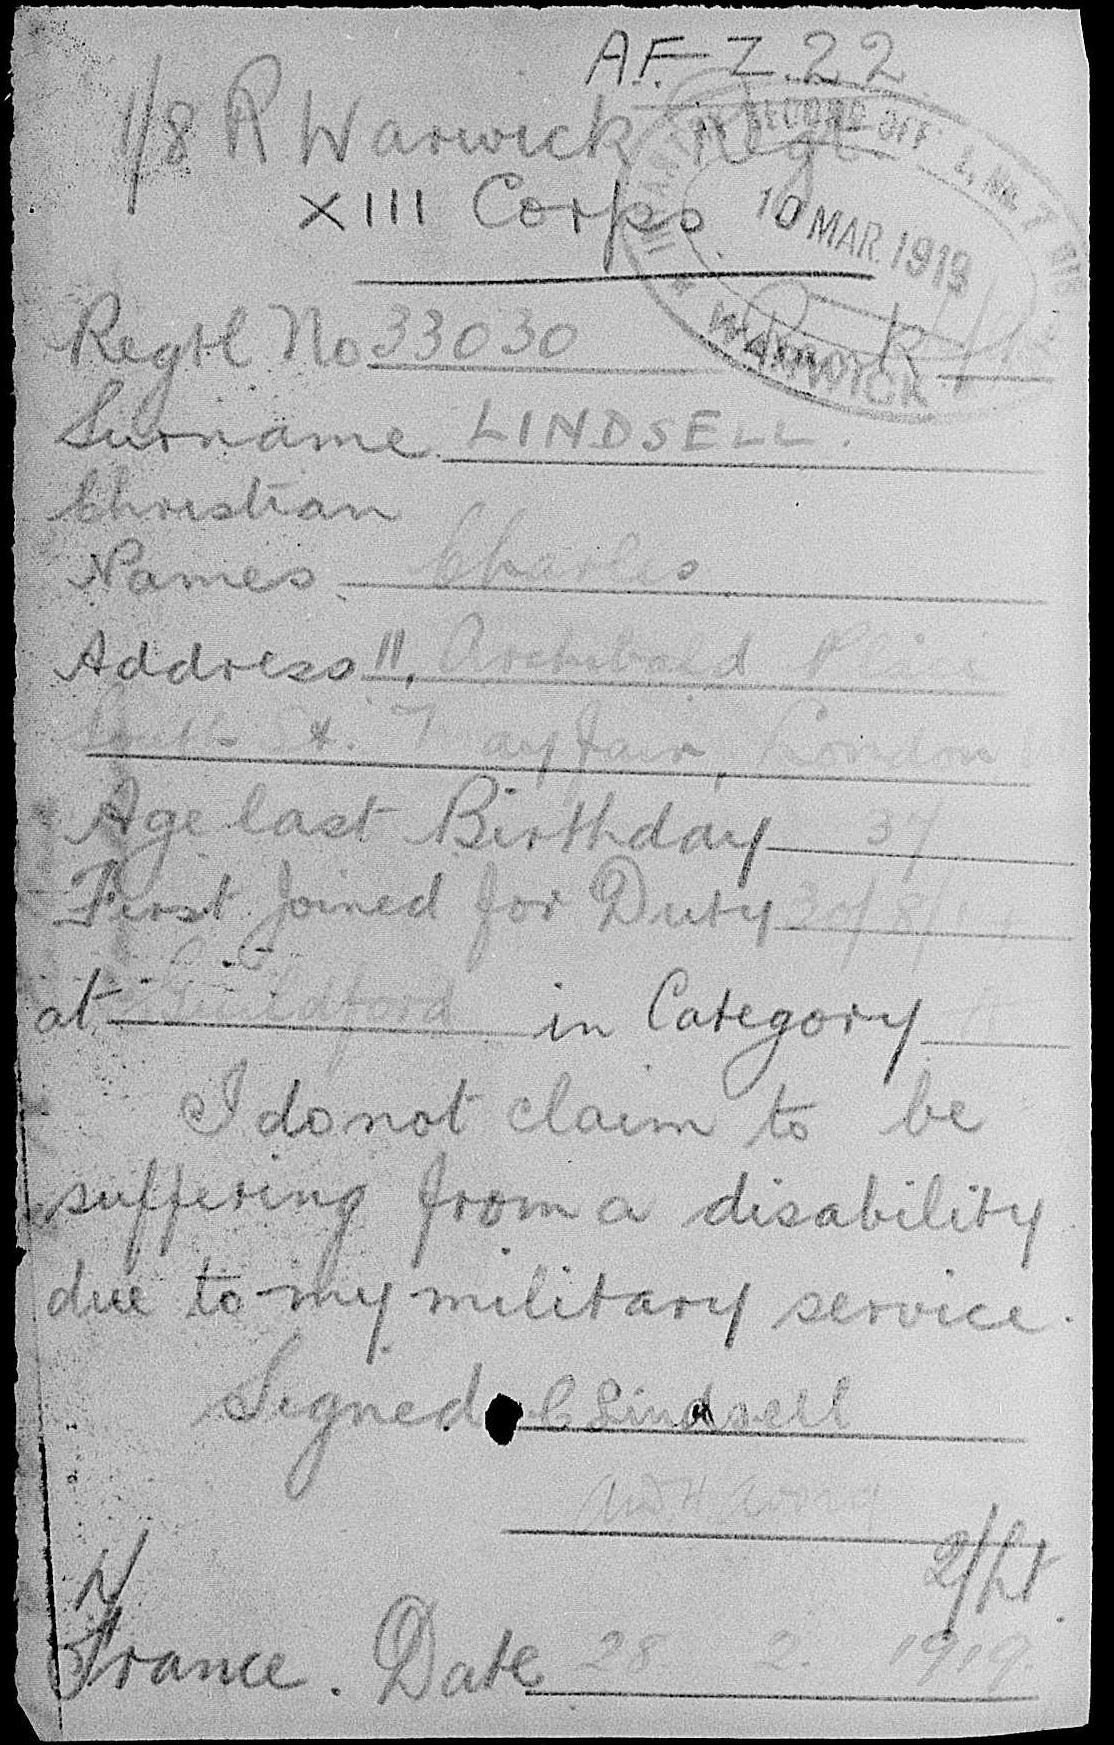 A.F. Z.22
1/8 R Warwick Regt
XIII Corps
10 MAR. 1919
WARWICK
Regtl No 33030
Surname LINDSELL.
Christian
Names Charles
Address 11, Archibald
St. Mayfair, London
Age last Birthday 37
First Joined for Duty 30/8/
at Guildford in Category
I do not claim to be
suffering from a disability
due to my military service.
Signed C Lindsell
2/Lt.
France. Date 28 2. 1919.